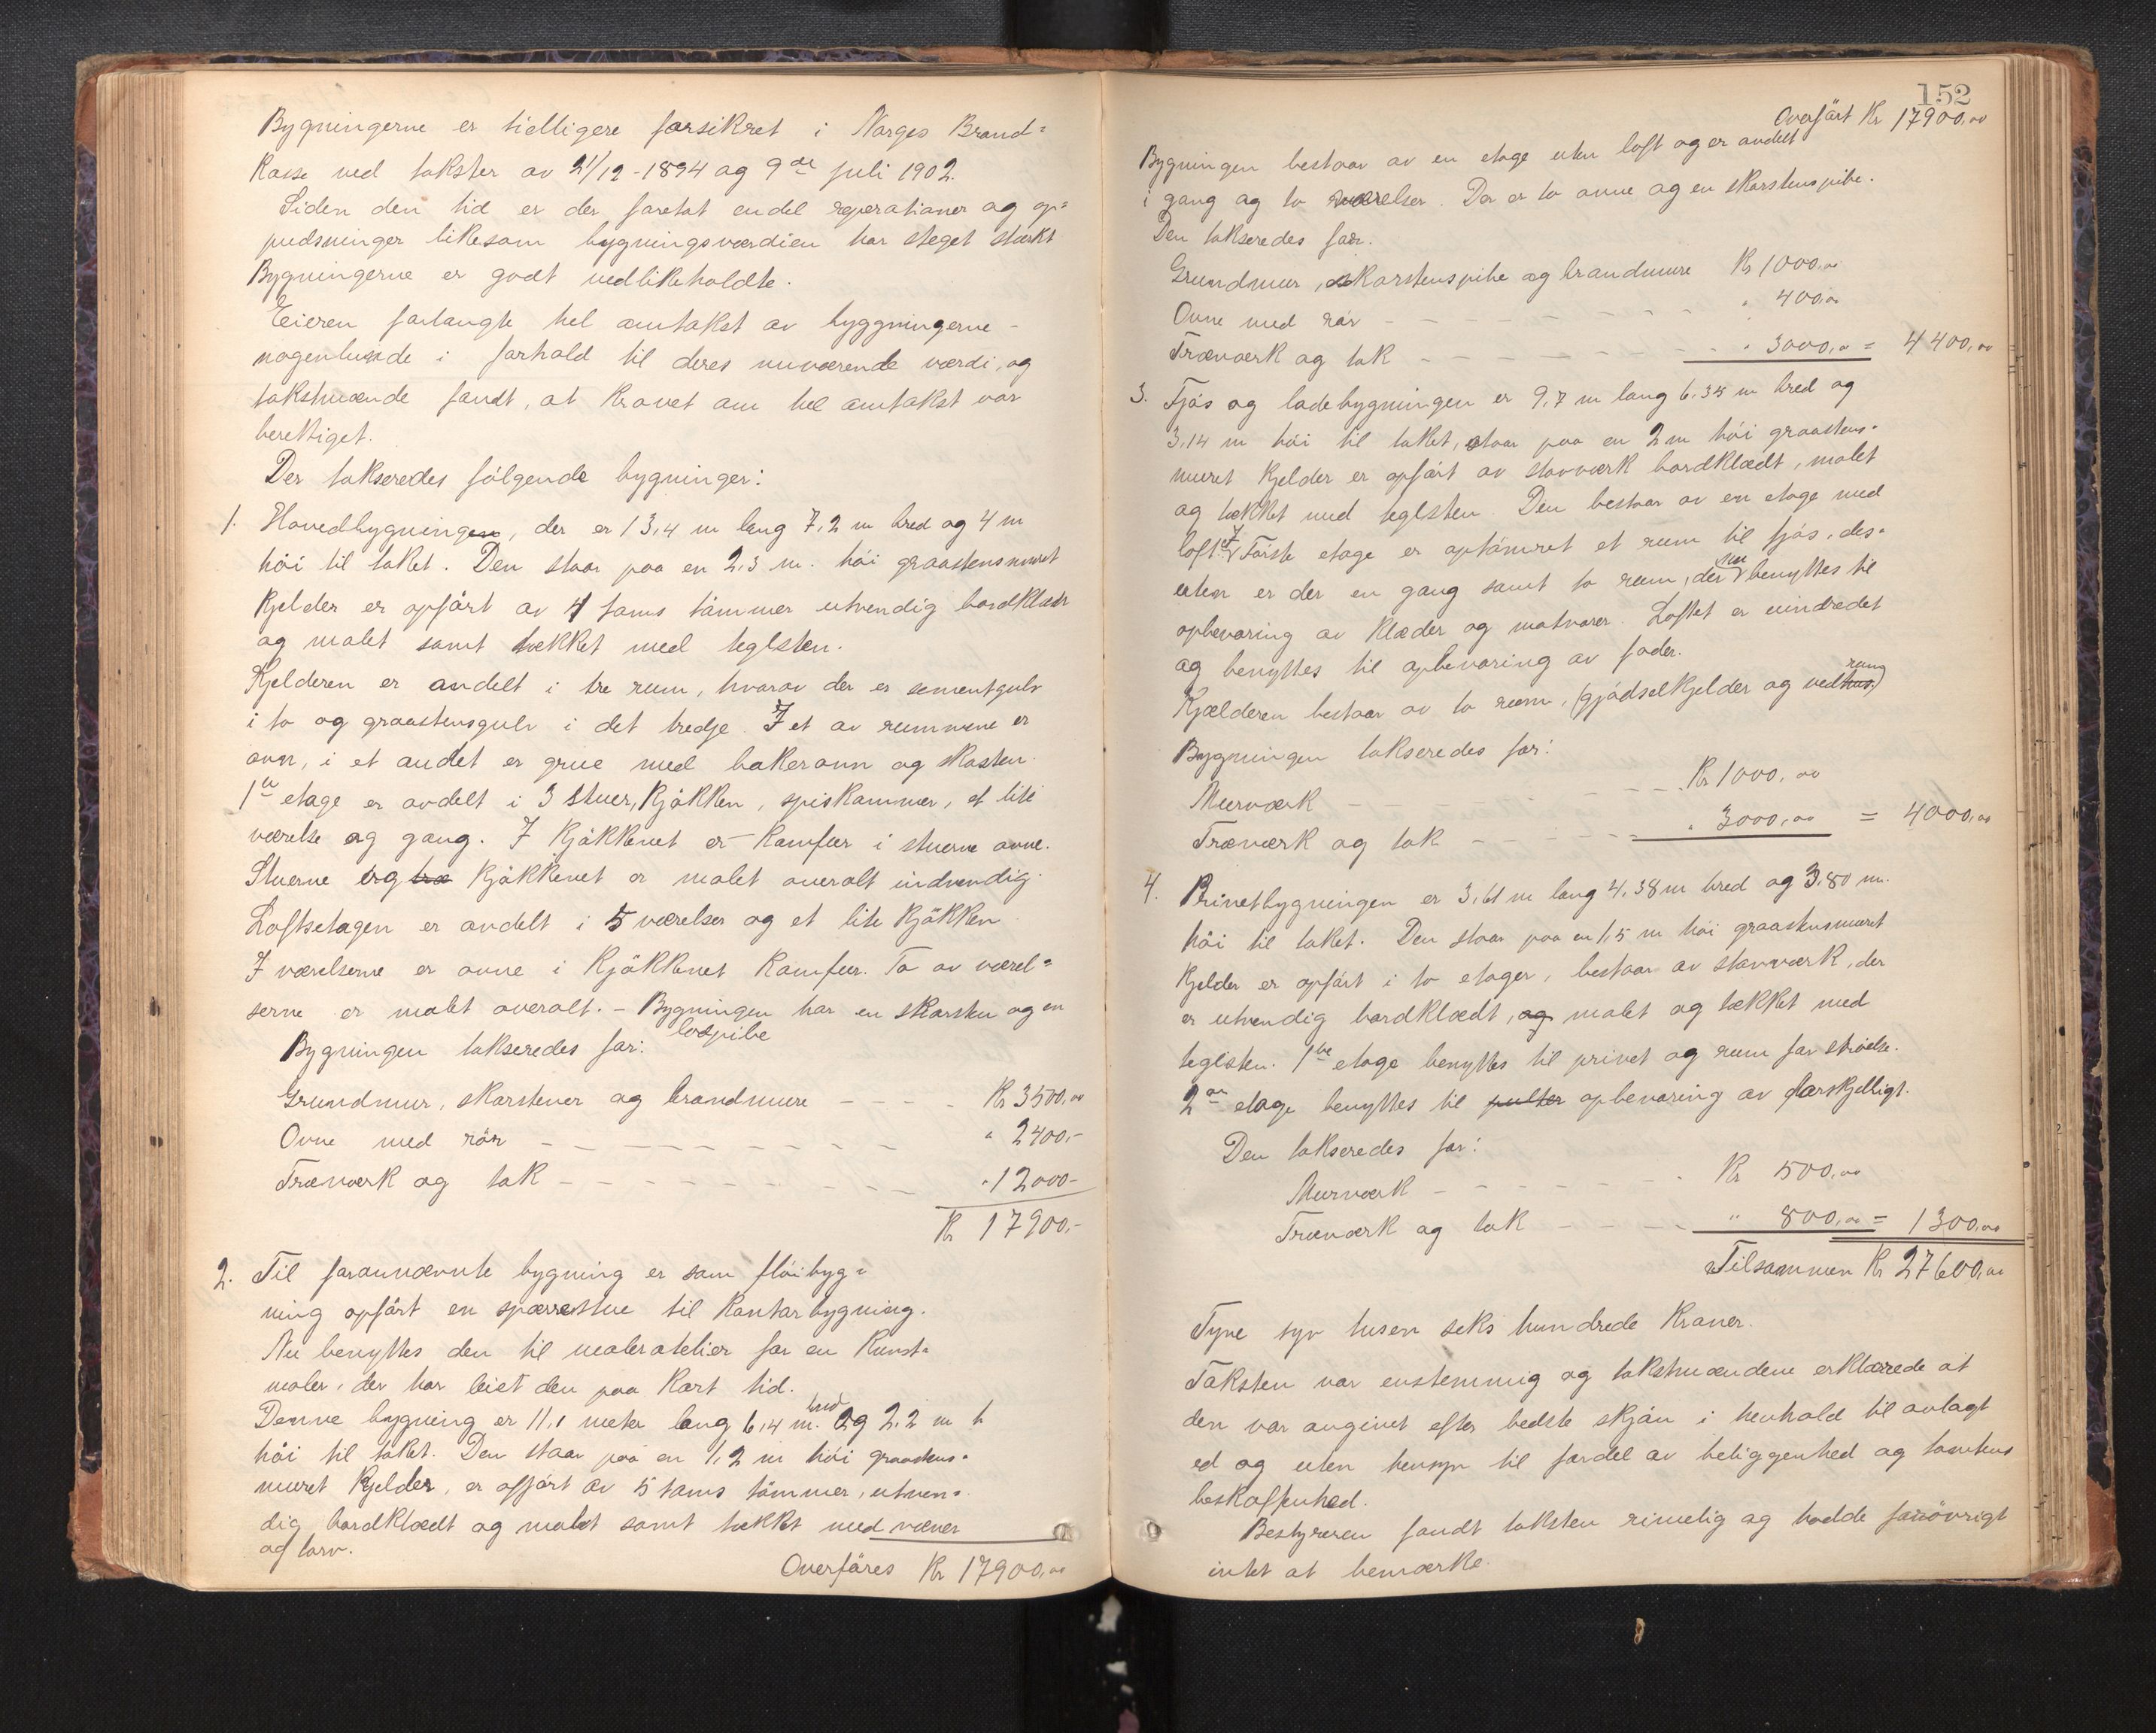 Bygningerne er tidligere forsikret i Norges Brand=
kasse ved takster av 21/12-1894 og 9de juli 1902.
Siden den tid er der foretat endel reperationer og op=
pudsninger likesom bygningsværdien har steget stærkt
Bygningerne er godt vedlikeholdte.
Eieren forlangte hel omtakst av byggningerne
nogenlunde i forhold til deres nuværende værdi, og
takstmænde fandt, at kravet om hel omtakst var
berettiget.
Der takseredes følgende bygninger:
1. Hovedbygningen, der er 13,4 m lang 7,2 m bred og 4 m
høi til taket. Den staar paa en 2,3 m. høi graastensmuret
kjelder er opført av 4 toms tømmer utvendig bordklædt
og malet samt tækket med teglsten.
Kjelderen er avdelt i tre rum, hvorav der er sementgulv
i to og graastensgulv i det tredje. I et av rummene er
ovn, i et andet er grue med bakerovn og skosten.
1ste etage er avdelt i 3 stuer, kjøkken, spiskammer, et lite
værelse og gang. I kjøkkenet er komfur i stuerne ovne.
Stuerne og kjøkkenet er malet overalt indvendig.
Loftsetagen er avdelt i 5 værelser og et lite kjøkken
I værelserne er ovne i kjøkkenet komfur. To av værel=
serne er malet overalt. - Bygningen har en skorsten og en
løspibe
Bygningen takseredes for:
Grundmur, skorstener og brandmure - - - - Kr 3500,00
Ovne med rør - - - - - - - " 2400,-
Træverk og tak - - - - - - - " 12000-
Kr 17900,-
2. Til forannævnte bygning er som fløibyg=
ning opført en sperrestue til kontorbygning.
Nu benyttes den til maleratelier for en kunst=
maler, der har leiet den paa kort tid.
Denne bygning er 11,1 meter lang 6,4 m. bred og 2,2 m h
høi til taket. Den staar paa en 1,2 m høi graastens=
muret kjelder, er opført av 5 toms tømmer, utven=
dig bordklædt og malet samt tækket med næver
og torv.
Overføres Kr 17900,00
152
Overført Kr 17900,00
Bygningen bestaar av en etage uten loft og er avdelt
i gang og to værelser. Der er to ovne og en skorstenspibe.
Den takseredes for.
Grundmur, skorstenspibe og brandmure Kr 1000,00
Ovne med rør - - - - - - - " 400,00
Træverk og tak - - - - - - - " 3000,00 = 4400,00
3. Fjøs og ladebygningen er 9,7 m lang 6.35 m bred og
3,14 m høi til taket, staar paa en 2 m høi graastens=
muret kjelder er opført av stavverk bordklædt, malet
og tækket med teglsten. Den bestaar av en etage med
loft. I første etage er optømret et rum til fjøs, des=
uten er der en gang samt to rum, der nu benyttes til
opbevaring av klæder og matvarer. Loftet er uindredet
og benyttes til opbevaring av foder.
Kjælderen bestaar av to rum, (gjødselkjelder og vedhus rum)
Bygningen takseredes for:
Murværk - - - - - - Kr 1000,00
Træværk og tak - - - - - " 3000,00 = 4000,00
4. Privetbygningen er 3,61 m lang 4,38 m bred og 3.80 m.
høi til taket. Den staar paa en 1,5 m høi graastensmuret
kjelder er opført i to etager, bestaar av stavværk, der
er utvendig bordklædt, og malet og tækket med
teglsten. 1ste etage benyttes til privet og rum for strøelse.
2den etage benyttes til opbevaring av forskjelligt.
Den takseredes for:
Murværk - - - - - - Kr 500,00
Træværk og tak - - - - " 800,00 = 1300,00
Tilsammen Kr 27600,00
Tyve syv tusen seks hundrede kroner.
Taksten var enstemmig og takstmændene erklærede at
den var avgivet efter bedste skjøn i henhold til avlagt
ed og uten hensyn til fordel av beliggenhed og tomtens
beskaffenhed.
Bestyreren fandt taksten rimelig og hadde forøvrigt
intet at bemærke.